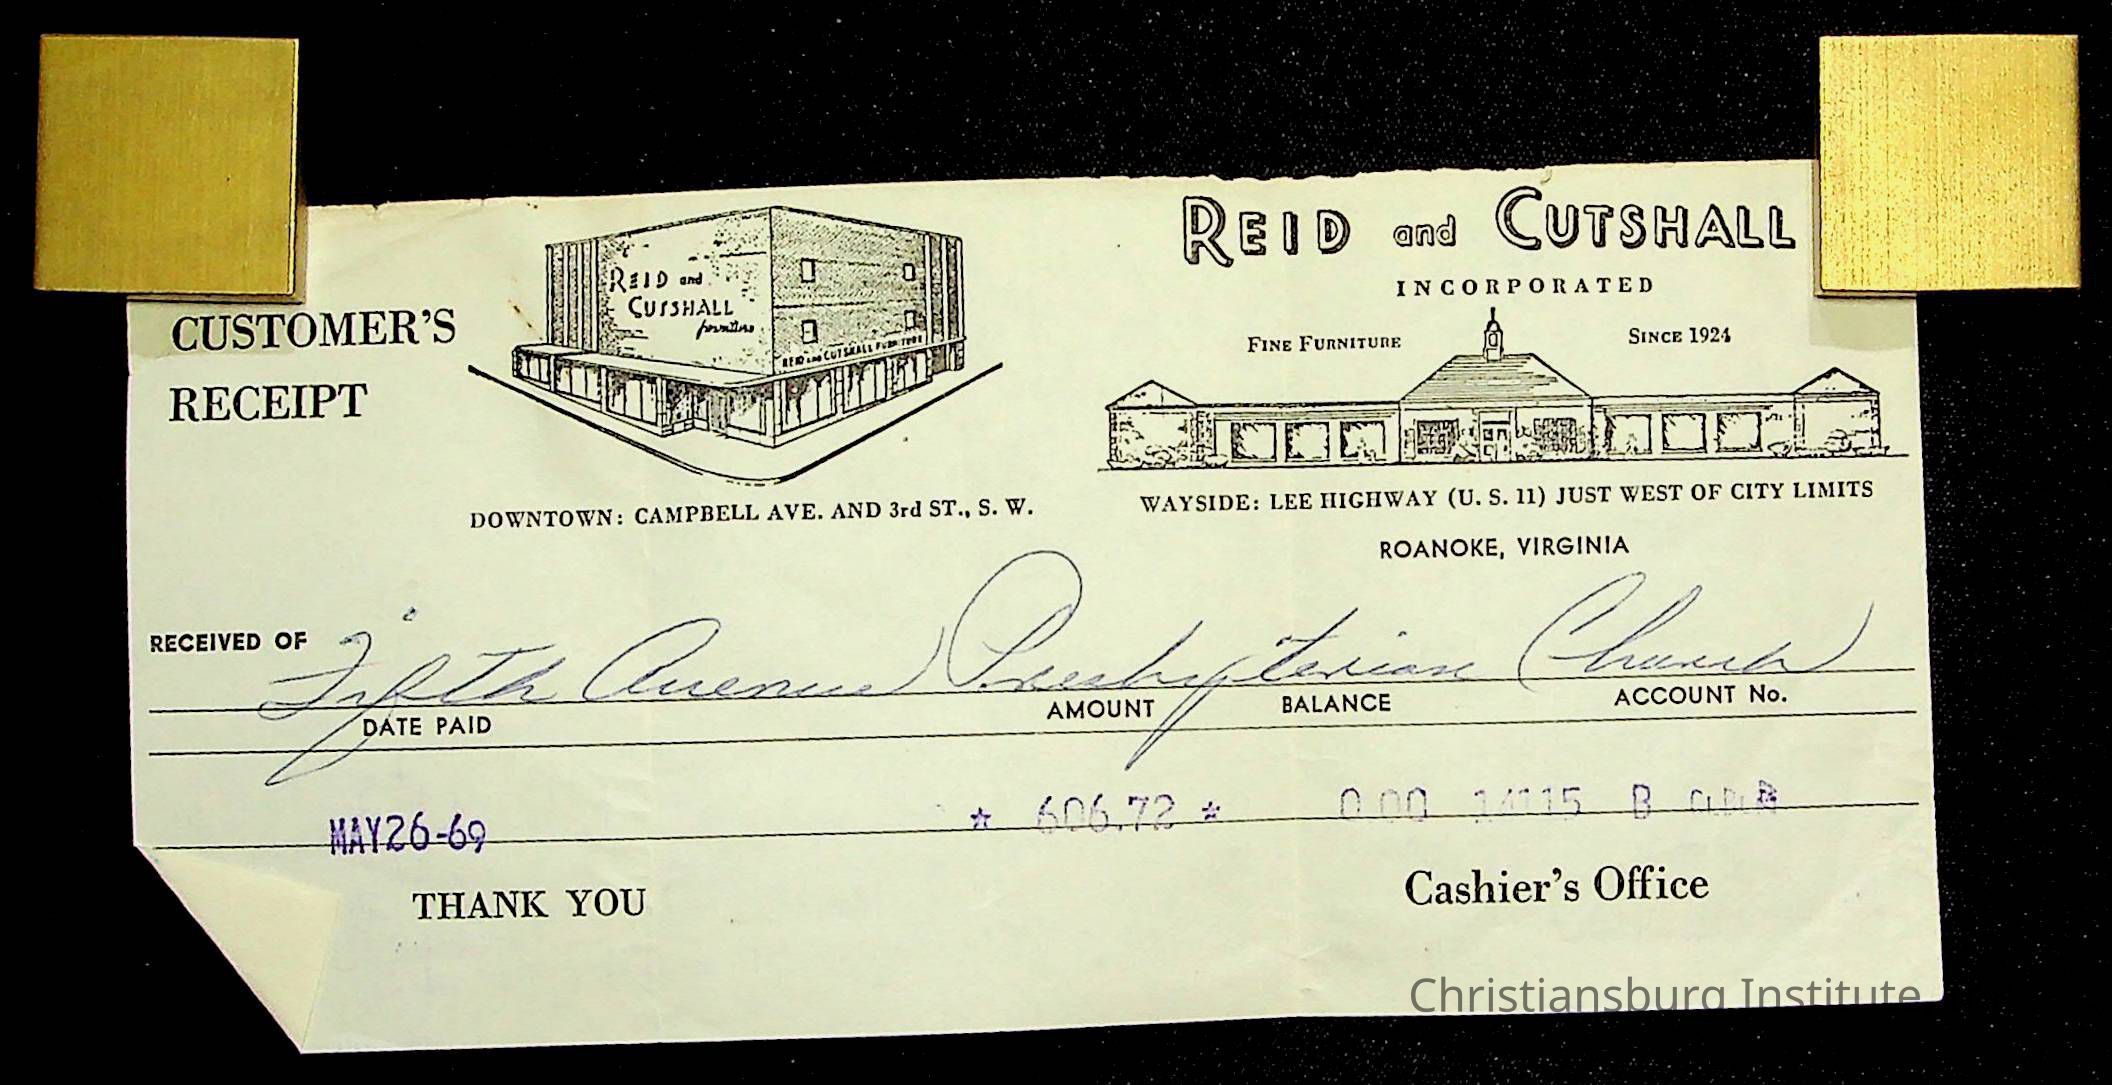 REID and CUTSHALL
INCORPORATED
REID and
CUTSHALL
furniture
REID and CUTSHALL FURNITURE
FINE FURNITURE SINCE 1924
CUSTOMER'S
RECEIPT
DOWNTOWN: CAMPBELL AVE. AND 3rd ST., S. W.
WAYSIDE: LEE HIGHWAY (U. S. 11) JUST WEST OF CITY LIMITS
ROANOKE, VIRGINIA
RECEIVED OF Fifth Avenue Presbyterian Church
DATE PAID AMOUNT BALANCE ACCOUNT No.
MAY 26-69 * 606.72 * 0.00 14115 B
THANK YOU Cashier's Office
Christiansburg Institute